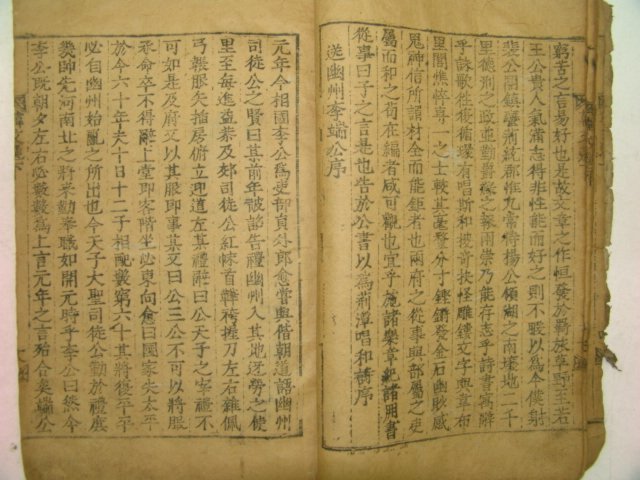 窮苦之言易好也是故文章之作恒發於羈旅草野至若
王公貴人氣滿志得非性能而好之則不暇以爲今僕射
裴公開鎮蠻荊統郡惟九常侍楊公領湖之南壤地二千
里德刑之政並勤爵祿之報兩崇乃能存志乎詩書寓辭
乎詠歌往復循環有唱斯和搜奇抉怪雕鏤文字與韋布
里閭憔悴專一之士較其毫釐分寸鏗鏘發金石幽眇感
鬼神信所謂材全而能鉅者也兩府之從事與部屬之吏
屬而和之苟在編者咸可觀也宜乎施諸樂章紀諸用書
從事曰子之言是也告於公書以爲荊潭唱和詩序
送幽州李端公序
元年今相國李公爲吏部員外郎愈嘗與偕朝道語幽州
司徒公之賢曰某前年被詔告禮幽州入其地迓勞之使
里至每進益恭及郊司徒公紅帓首鞾袴握刀左右雜佩
弓韔服矢揷房俯立迎道左某禮辭曰公天子之宰禮不
可如是及府又以其服即事某又曰公三公不可以將服
承命卒不得辭上堂即客階坐必東向愈曰國家失太平
於今六十年夫十日十二子相配六十其將復平平
必自幽州始亂之所出也今天子大聖司徒公勤於禮庶
幾帥先河南北之將來覲奉職如開元時乎李公曰然今
李公既朝夕左右必數數爲上言元年之言殆合矣端公